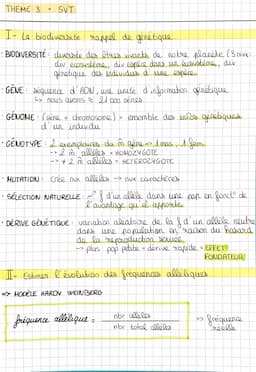 THEME 3 • SVT
I - La biodiversité rappel de génétique
• BIODIVERSITÉ : diversité des êtres vivants de notre planète (3 niva :
div écosystème, div espèce dans un écosystème, div
génétique des individus d'une espèce.
• GÈNE : séquence d'ADN, une unité d'information génétique
↳ nous avons ≈ 21 000 gènes
• GÉNOME : (gène + chromosome) = ensemble des infos génétiques
d'un individu
• GÉNOTYPE : 2 exemplaires du m̂ gène → 1 mas, 1 fem
→ 2 m̂ allèles = HOMOZYGOTE
→ ≠ 2 allèles = HÉTÉROZYGOTE
• MUTATION : crée nvx allèles → nvx caractères
• SÉLECTION NATURELLE : f d'un allèle dans une pop en fonct° de
l'avantage qu'il apporte
• DÉRIVE GÉNÉTIQUE : variation aléatoire de la f d'un allèle neutre
dans une population en raison du hasard
de la reproduction sexuée
→ plus pop petite = dérive rapide = EFFET
FONDATEUR
II - Estimer l'évolution des fréquences alléliques
=> MODÈLE HARDY WEINBERG
fréquence allélique = nbr allèles
nbr total allèles
=> fréquence
réelle